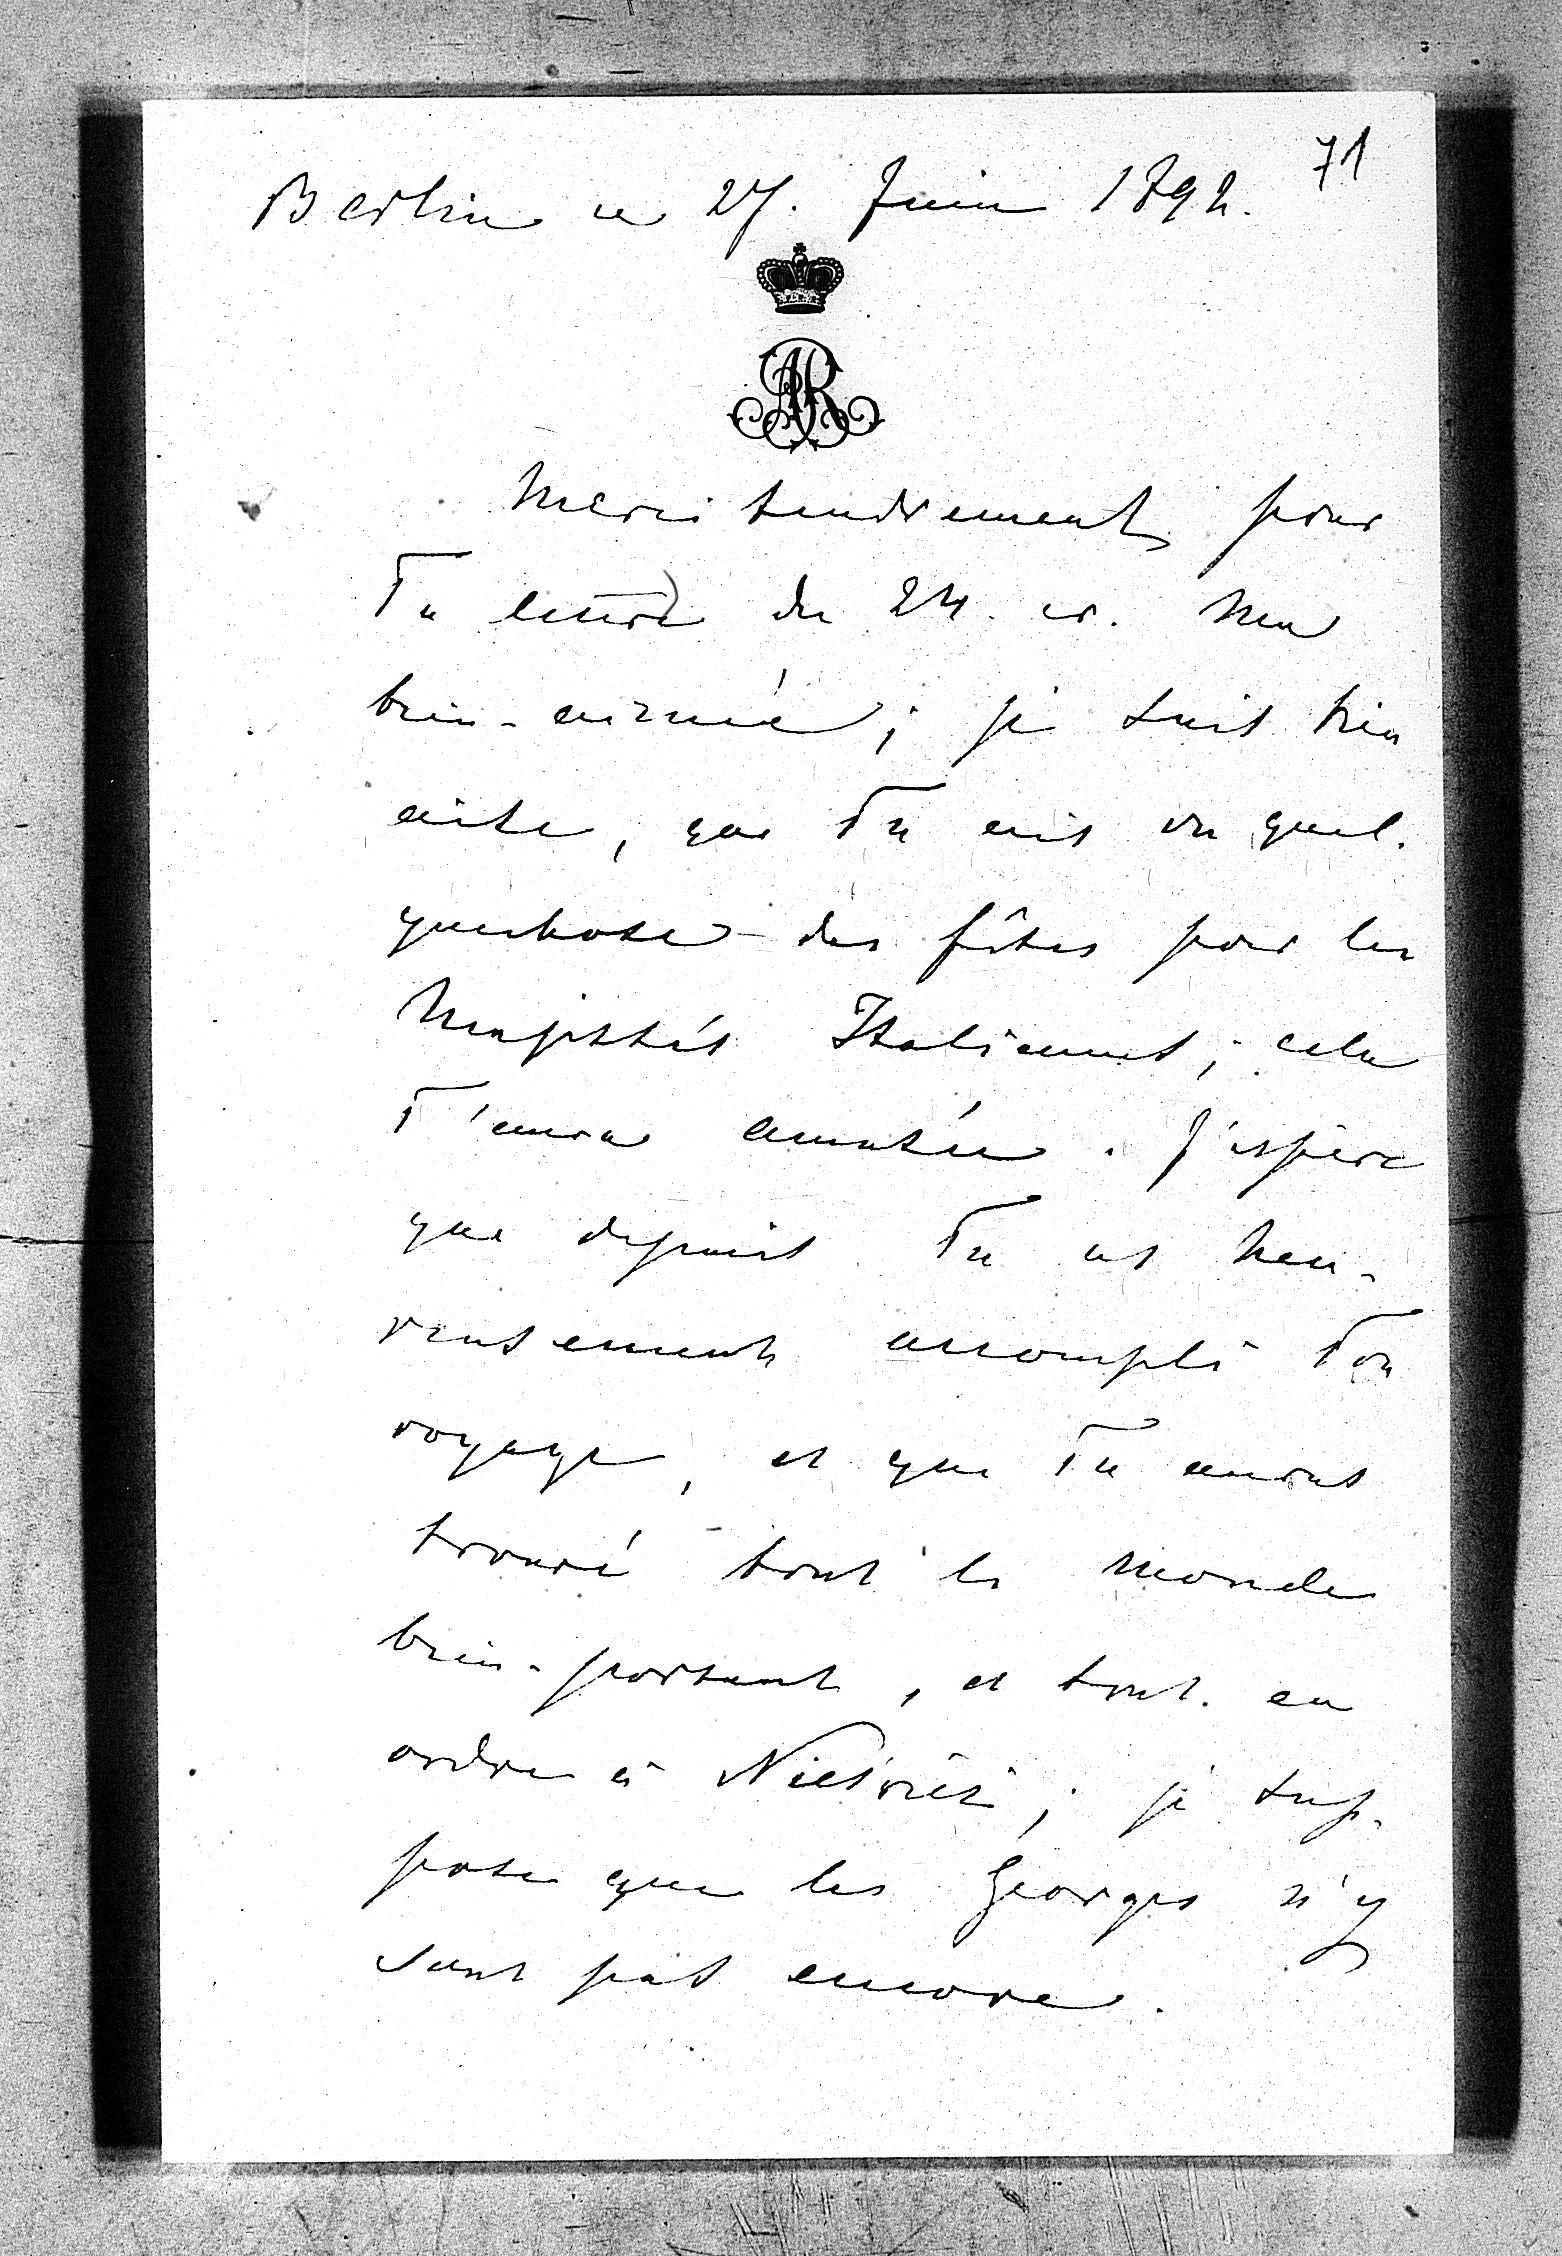 71
Berlin ce 27. Juin 1892.
AR
Merci tendrement pour
Ta lettre du 24. cr. Ma
bien-aimée; je suis bien
aise, que Tu ais vu quel-
quechose des fêtes pour les
Majestés Italiennes; cela
T'aura amusée. J'espère
que depuis Tu as heu-
reusement accompli Ton
voyage, et que Tu auras
trouvé tout le monde
bien-portant, et tout en
ordre à ; je sup-
pose que les Georges n'y
sont pas encore.